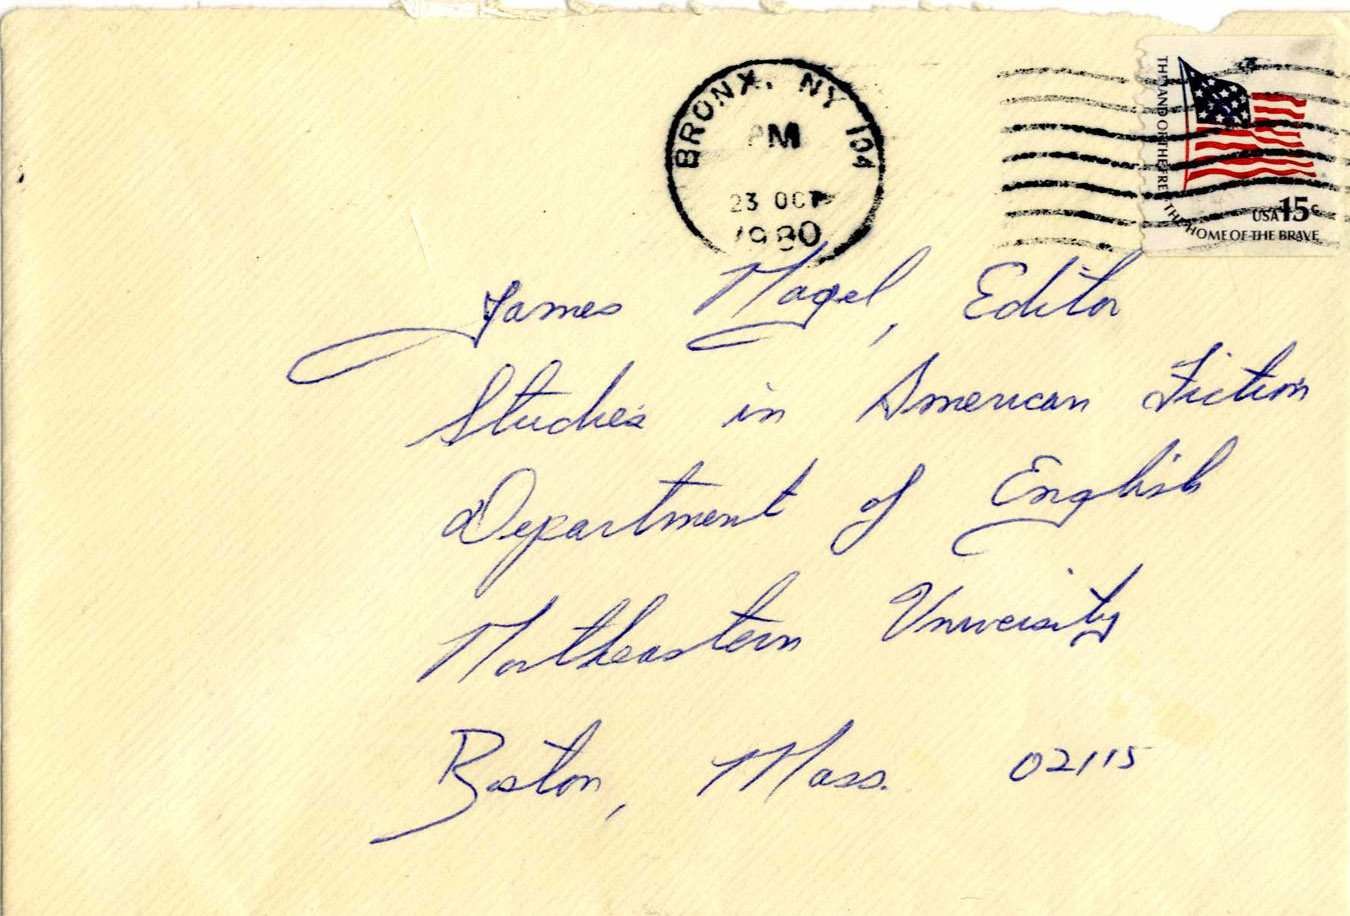 BRONX, NY 104
PM
23 OCT
1980
THE LAND OF THE FREE THE HOME OF THE BRAVE
USA 15c
James Nagel, Editor
Studies in American Fiction
Department of English
Northeastern University
Boston, Mass. 02115